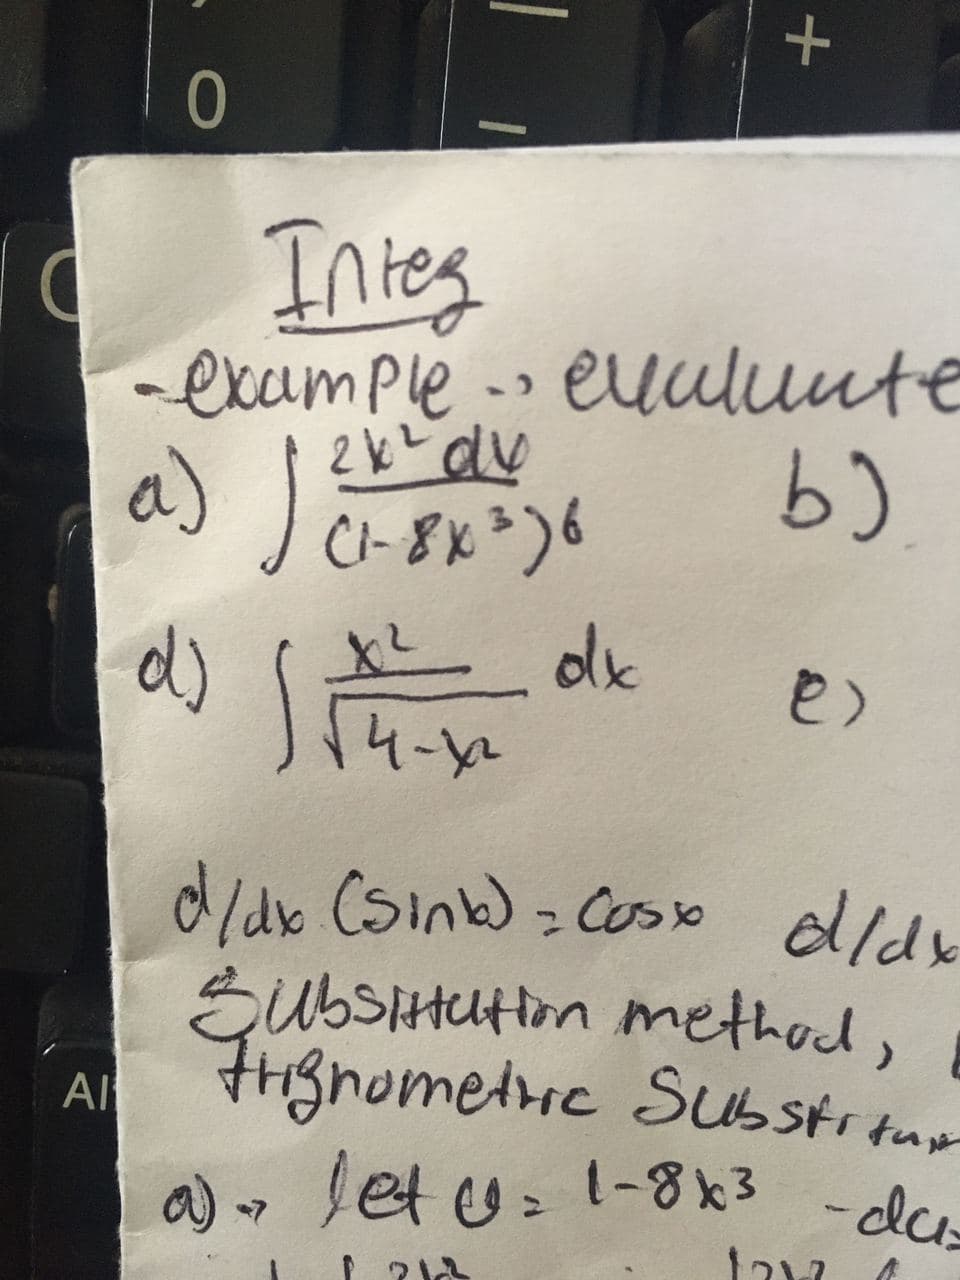 0
+
Integ
-example -> evaluate
a) ∫ 2x² dx / (1-8x³)6 b)
d) ∫ x² / √4-x² dx e)
d/dx (sinx) = cosx d/dx
Substitution method,
trignometric
a) -> let u = 1-8x3 -du=